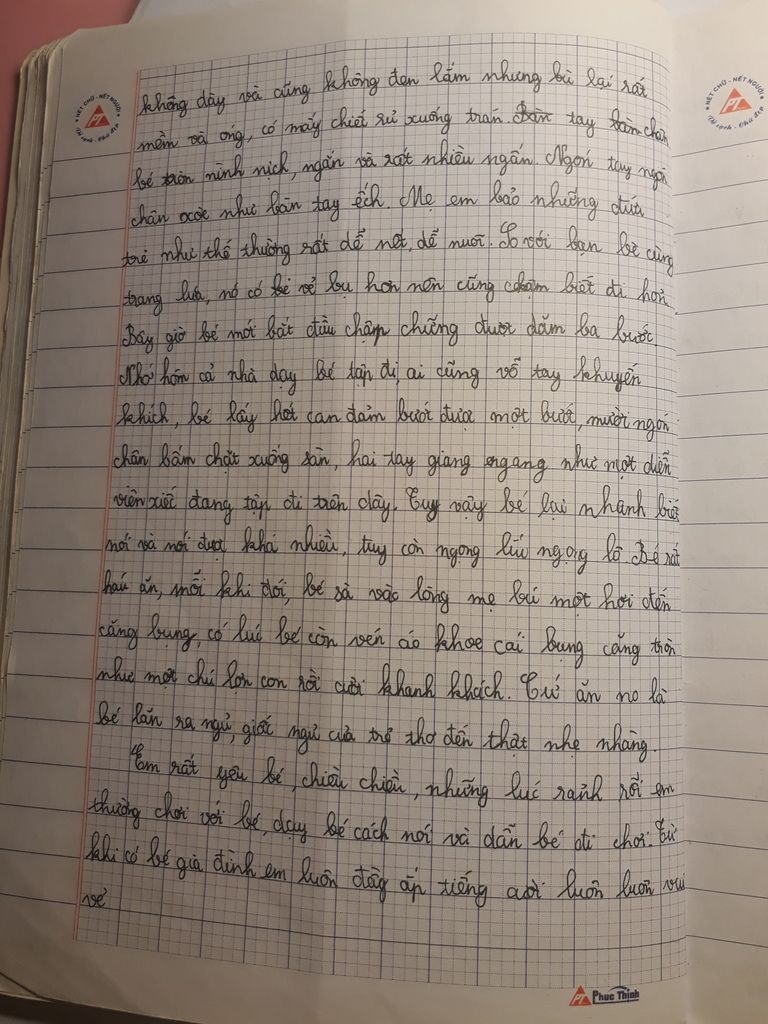 NÉT CHỮ - NẾT NGƯỜI
PT
Vở sạch - Chữ đẹp
NÉT CHỮ - NẾT NGƯỜI
PT
Vở sạch - Chữ đẹp
không dày và cũng không đen lắm nhưng bù lại rất
mềm và óng, có mấy chiếc rủ xuống trán. Bàn tay bàn chân
bé tròn nình nịch, ngắn và rất nhiều ngấn. Ngón tay ngón
chân xoè như bàn tay ếch. Mẹ em bảo những đứa
trẻ như thế thường rất dễ nết, dễ nuôi. So với bạn bè cùng
trang lứa, nó có bé vẻ bụ hơn nên cũng chậm biết đi hơn.
Bây giờ bé mới bắt đầu chập chững được dăm ba bước.
Nhớ hôm cả nhà dạy bé tập đi, ai cũng vỗ tay khuyến
khích, bé lấy hết can đảm bướt được một bướt, mười ngón
chân bấm chặt xuống sàn, hai tay giang ngang như một diễn
viên xiếc đang tập đi trên dây. Tuy vậy bé lại nhanh biết
nói và nói được khá nhiều, tuy còn ngọng líu ngọng lô. Bé rất
háu ăn, mỗi khi đói, bé sà vào lòng mẹ bú một hơi đến
căng bụng, có lúc bé còn vén áo khoe cái bụng căng tròn
như một chú lợn con rồi cười khanh khách. Cứ ăn no là
bé lăn ra ngủ, giấc ngủ của trẻ thơ đến thật nhẹ nhàng.
Em rất yêu bé, chiều chiều, những lúc rảnh rỗi em
thường chơi với bé, dạy bé cách nói và dẫn bé đi chơi. Từ
khi có bé gia đình em luôn đầy ắp tiếng cười luôn luôn vui
vẻ
PT Phuc Thinh